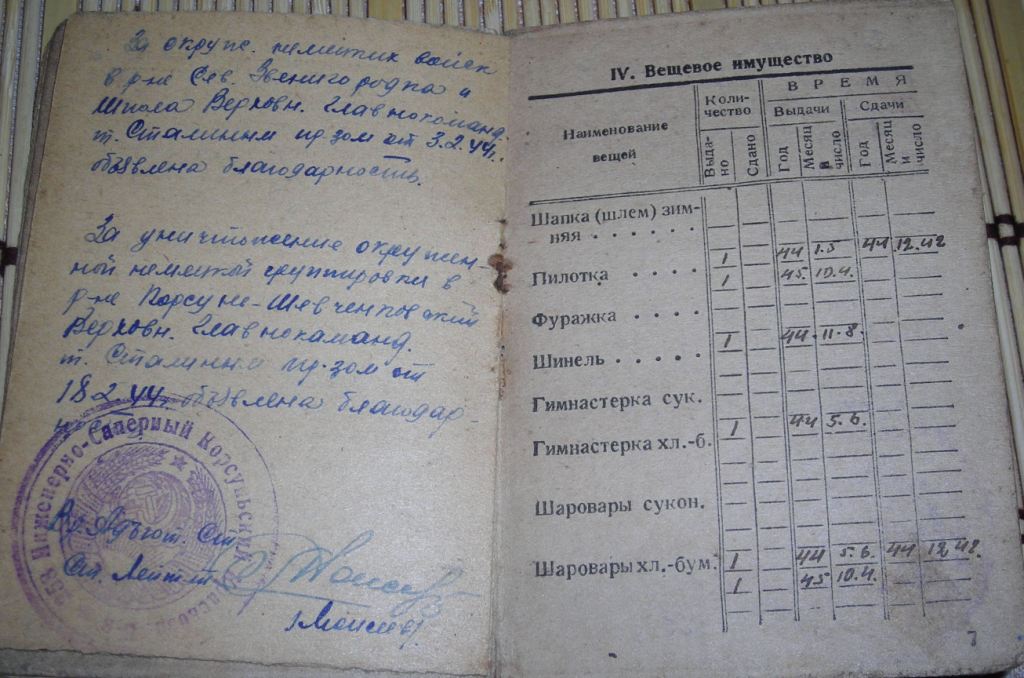 За окруж. немецких войск
в р-не Сев. Звенигородка и
Шпола Верховн. Главнокоманд.
т. Сталиным пр-зом от 3.2.44г.
объявлена благодарность.
За уничтожение окружен-
ной немецкой группировки в
р-не Корсунь-Шевченковский
Верховн. Главнокоманд.
т. Сталиным пр-зом от
18.2.44г. объявлена благодар-
253 Инженерно-Саперный Корсуньский
Адъют. Ст.
Ст. Лейт-т
IV. Вещевое имущество
Наименование вещей
Количество
ВРЕМЯ
Выдачи
Сдачи
Выдано
Сдано
Год
Месяц и число
Год
Месяц и число
Шапка (шлем) зим-
няя . . . . . . 1 44 1.5 44 12.42
Пилотка . . . . 1 45 10.4.
Фуражка . . . .
Шинель . . . . . 1 44 11-8.
Гимнастерка сук.
Гимнастерка хл.-б. 1 44 5.6.
Шаровары сукон.
Шаровары хл.-бум. 1 44 5.6. 44 12.42.
1 45 10.4.
7